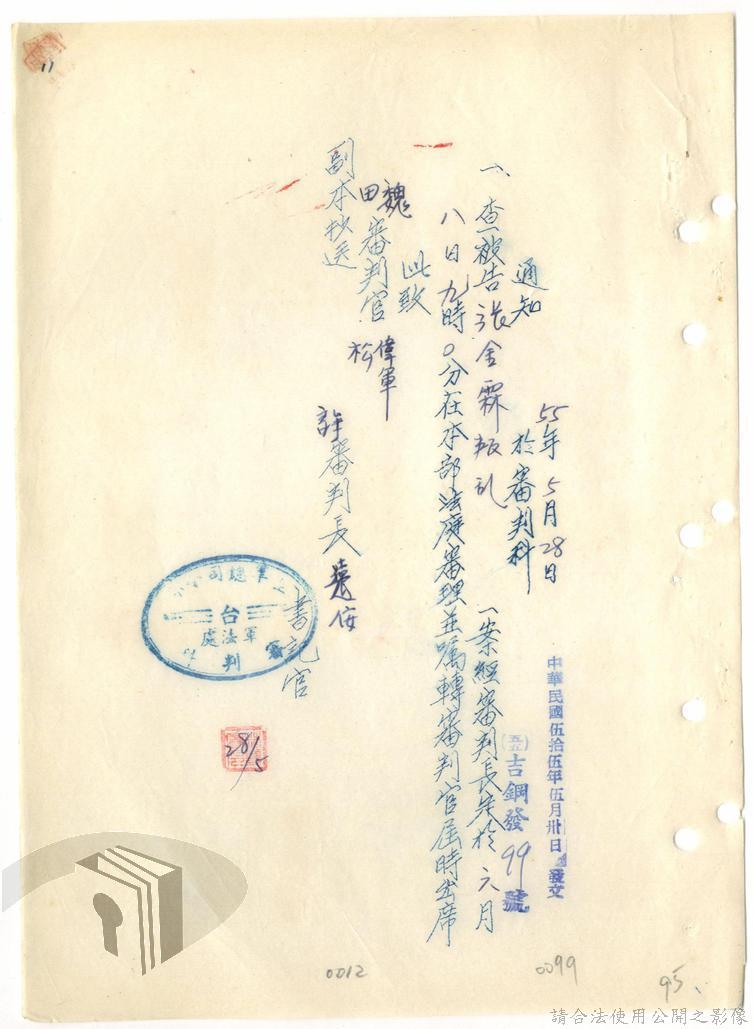 通知
55年5月28日
於審判科
中華民國伍拾伍年伍月卅日發文
(五五)吉鋼發99號
一、查被告張金霖叛乱一案經審判長定於六月
八日九時0分在本部法庭審理並囑轉審判官屆時出席
此致
魏審判官偉軍
田松
副本抄送
許審判長
書記官
總司令
台
軍法處
審判
28/5
11
0012
0099
95、
請合法使用公開之影像